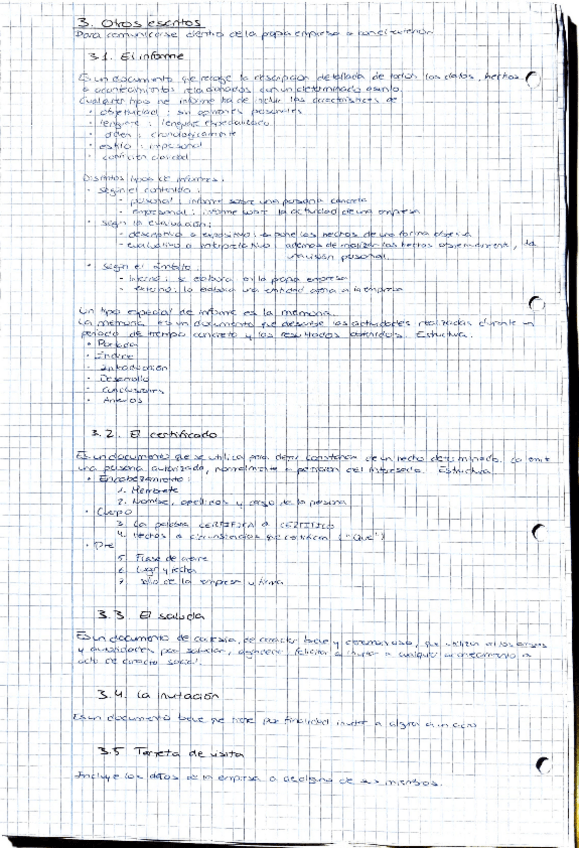 3. Otros escritos
Para comunicarse dentro de la propia empresa o con el exterior.
3.1. El informe
Es un documento que recoge la descripción detallada de todos los datos, hechos
o acontecimientos relacionados con un determinado asunto.
Cualquier tipo de informe ha de incluir las características de
· objetividad : sin opiniones personales
· lenguaje : lenguaje especializado
· orden : cronologicamente
· estilo : impersonal
Distintos tipos de informes:
· Según el contenido :
- personal : informe sobre una persona concreta
- empresarial : informe sobre la actividad de una empresa
· según la evaluación:
- descriptivo o expositivo : expone los hechos de una forma objetiva
- evaluativo o interpretativo : además de los hechos objetivamente, la
personal.
· Según el ámbito
- interno : se elabora en la propia empresa
- externo : lo elabora una entidad ajena a la empresa
Un tipo especial de informe es la memoria.
La memoria es un documento que describe las actividades realizadas durante un
periodo de tiempo concreto y los resultados obtenidos. Estructura.
· Portada
· Índice
· Introducción
· Desarrollo
· Conclusiones
· Anexos
3.2. El certificado
Es un documento que se utiliza para dejar constancia de un hecho determinado. Lo emite
una persona autorizada, normalmente a petición del interesado. Estructura
· Encabezamiento :
1. Membrete
2. Nombre, apellidos y cargo de la persona
· Cuerpo
3. La palabra CERTIFICA o CERTIFICO
4. Hechos o circunstancias ("Que")
· Pie
5. Frase de cierre
6. Lugar y fecha
7. Sello de la empresa y firma
3.3. El saluda
Es un documento de cortesía, de carácter breve y que utilizan
y autoridades para saludar, agradecer, felicitar o invitar a cualquier acontecimiento o
acto de carácter social.
3.4. La invitación
Es un documento breve que tiene por finalidad invitar a alguien a un acto
3.5 Tarjeta de visita
Incluye los datos de la empresa o de alguno de sus miembros.